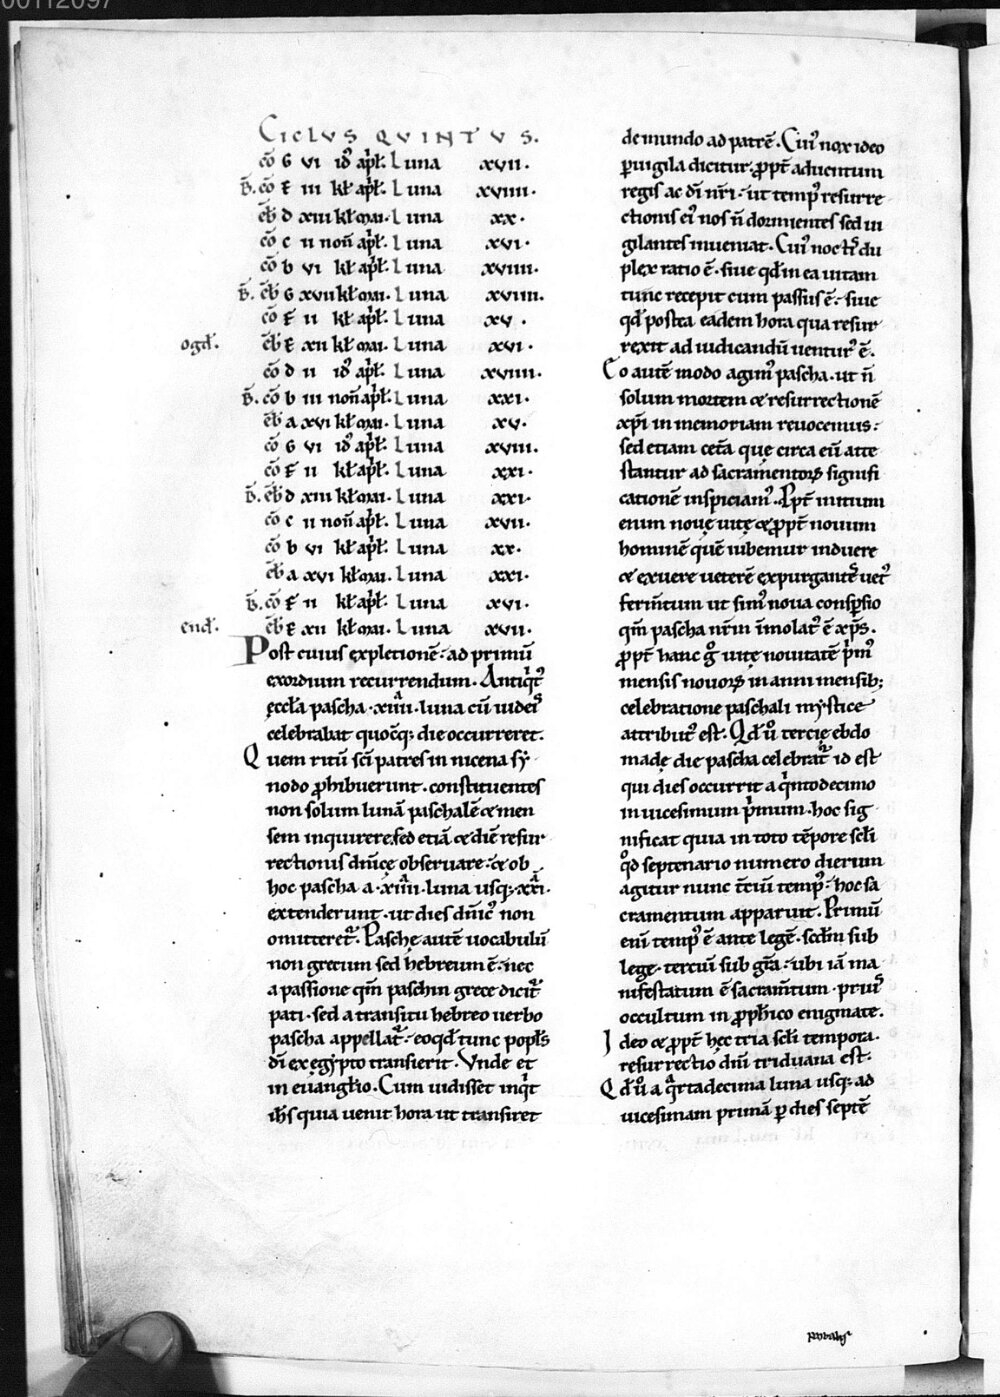 00112097
CICLVS QVINTVS.
cō G vi idꝰ apł. Luna xvii.
B̄. cō E iii kł apł. Luna xviii.
eb̄ d xiii kł mai. Luna xx.
cō c ii non̄ apł. Luna xvi.
cō b vi kł apł. Luna xviiii.
B̄. eb̄ G xvii kł mai. Luna xviii.
cō F ii kł apł. Luna xv.
ogd̄. eb̄ E xii kł mai. Luna xvi.
cō d ii idꝰ apł. Luna xviiii.
B̄. cō b iii non̄ apł. Luna xxi.
eb̄ a xvi kł mai. Luna xv.
cō G vi idꝰ apł. Luna xviii.
cō F ii kł apł. Luna xxi.
B̄. eb̄ d xiii kł mai. Luna xxi.
cō c ii non̄ apł. Luna xvii.
cō b vi kł apł. Luna xx.
eb̄ a xvi kł mai. Luna xxi.
B̄. cō F ii kł apł. Luna xvi.
end̄. eb̄ E xii kł mai. Luna xvii.
Post cuius expletionē. ad primū
exordium recurrendum. Antiqͥtꝰ
ęccła pascha .xiiii. luna cū iudeis
celebrabat quocūq; die occurreret.
Quem ritū sc̄i patres in nicena sy
nodo ꝓhibuerunt. constituentes
non solum lunā paschalē & men
sem inquirere. sed etiā & diē resur
rectionis dn̄icę obseruare. & ob
hoc pascha a .xiiii. luna usq; .xxi.
extenderunt. ut dies dn̄icꝰ non
omitteret᷑. Paschę autē uocabulū
non grecum sed hebreum ē. nec
a passione qm̄ paschin grece dicit᷑
pati. sed a transitu hebreo uerbo
pascha appellat᷑. eo qd̄ tunc popł's
dī ex egypto transierit. Vnde et
in euangłio. Cum uidisset inqͥt
ih̄s quia uenit hora ut transiret
de mundo ad patrē. Cuiꝰ nox ideo
ꝑuigila dicitur. ꝓpt̄ aduentum
regis ac dī nr̄i. ut tempꝰ resurre
ctionis eiꝰ nos n̄ dormientes sed ui
gilantes inueniat. Cuiꝰ noctis du
plex ratio ē. siue qd̄ in ea uitam
tunc recepit cum passus ē. siue
qd̄ postea eadem hora qua resur
rexit ad iudicandū uenturꝰ ē.
Eo autē modo agimꝰ pascha. ut n̄
solum mortem & resurrectionē
xp̄i in memoriam reuocemus.
sed etiam cet̄a quę circa eū atte
stantur ad sacramentoꝝ signifi
cationē inspiciamꝰ. Ꝓpt̄ initium
enim nouę uitę & ꝓpt̄ nouum
hominē quē iubemur induere
& exuere ueterē expurgantes uetꝰ
ferm̄tum ut simꝰ noua conspersio
qm̄ pascha nr̄m īmolatꝰ ē xp̄s.
ꝓpt̄ hanc gͦ uitę nouitatē pͥmꝰ
mensis nouoꝝ in anni mensib;
celebratione paschali mystice
attributꝰ est. Qd̄ uͦ tercię ebdo
madę die pascha celebrat᷑ id est
qui dies occurrit a qͥntodecimo
in uicesimum pͥmum. hoc sig
nificat quia in toto tēpore scłi
qͦd septenario numero dierum
agitur nunc t̄ciū tempꝰ. hoc sa
cramentum apparuit. Primū
eni tempꝰ ē ante legē. scd̄m sub
lege. tercıū sub gr̄a. ubi iā ma
nifestatum ē sacram̄tum. priꝰ
occultum in ꝓph̄ico enigmate.
Ideo & ꝓpt̄ hęc tria scłi tempora.
resurrectio dn̄i triduana est.
Qd̄ uͦ a qͣrtadecima luna usq; ad
uicesimam primā ꝑ dies septē